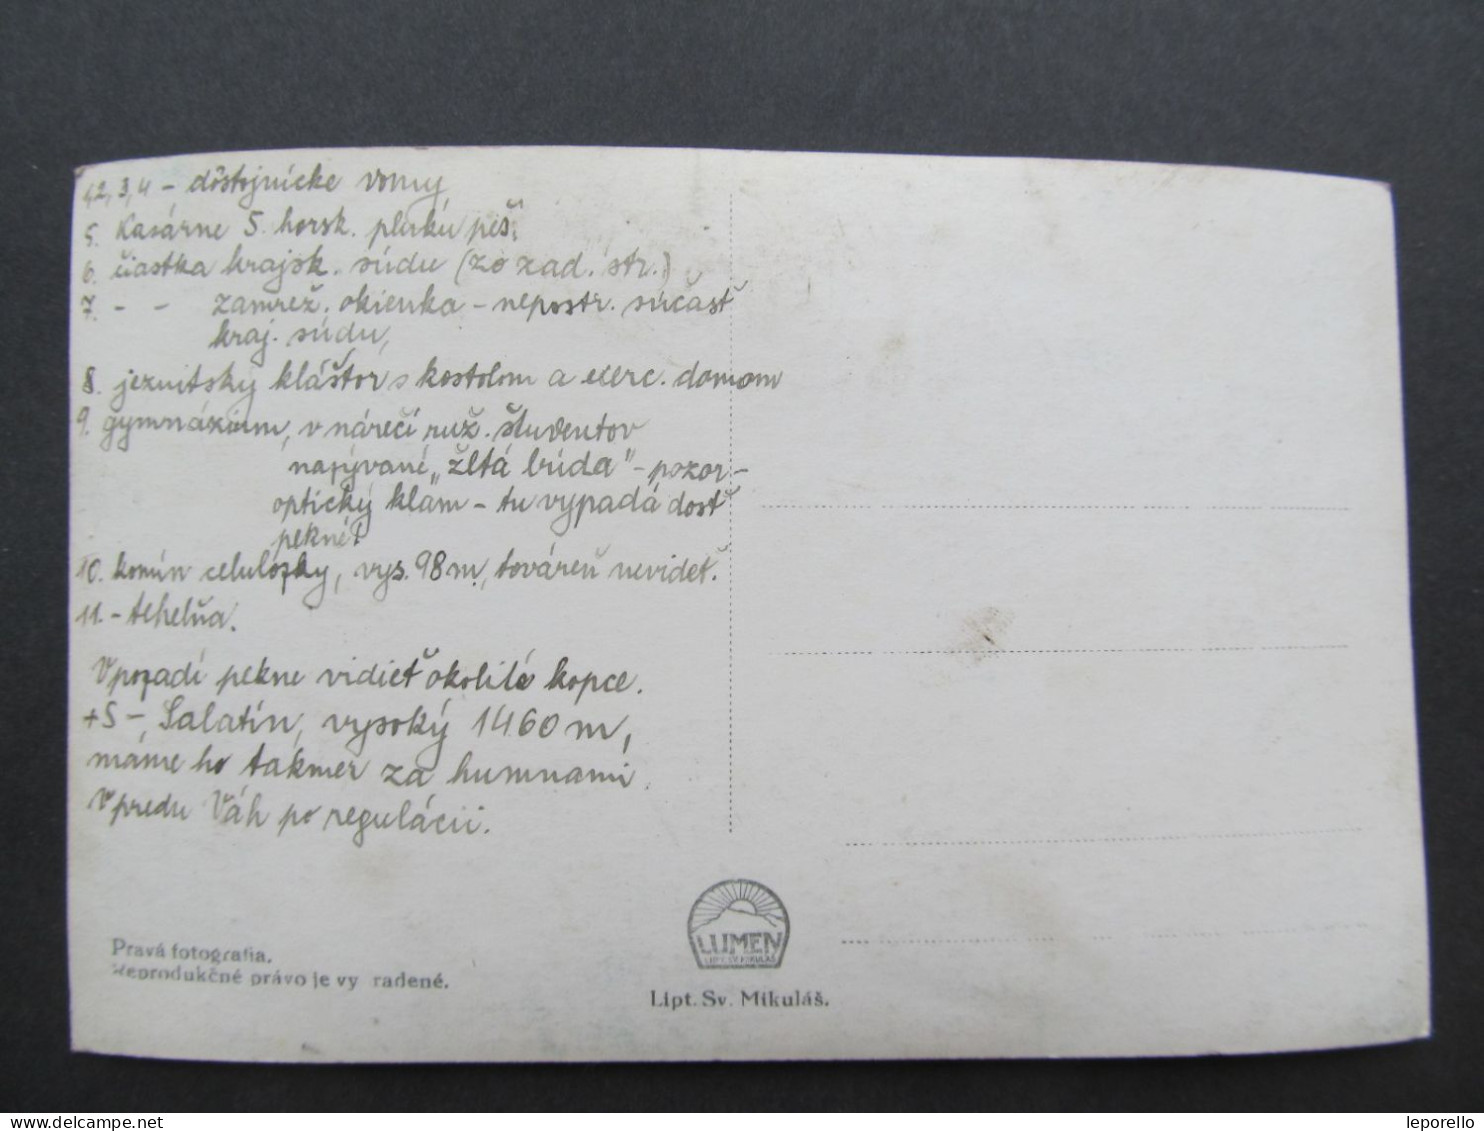 1,2,3,4 - dôstojnícke domy
5. Kasárne 5. horsk. pluku peš.
6. čiastka krajsk. súdu (zo zad. str.)
7. - - zamrež. okienka - nepostr. súčasť
kraj. súdu,
8. jezuitský kláštor s kostolom a exerc. domom
9. gymnázium, v nárečí ruž. študentov
nazývané „žltá búda" - pozor -
optický klam - tu vypadá dosť
pekné!
10. komín celulózky, vys. 98 m, továreň nevideť.
11. - tehelňa.
V pozadí pekne vidieť okolité kopce.
+S -, Salatín, vysoký 1460 m,
máme ho takmer za humnami.
V predu Váh po regulácii.
LUMEN
LIPT. SV. MIKULÁŠ
Pravá fotografia.
Reprodukčné právo je vy radené.
Lipt. Sv. Mikuláš.
www.delcampe.net
leporello